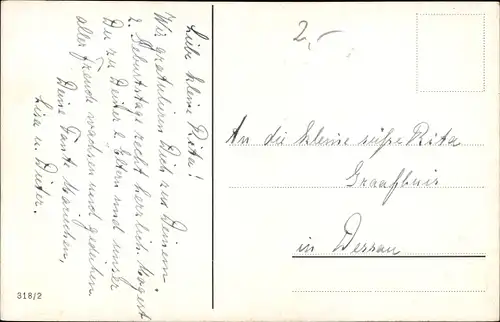 Liebe kleine Rita!
Wir gratulieren Dich zu Deinem
2. Geburtstage recht herzlich. Mögest
Du zu Deiner l. Eltern und unser
aller Freude wachsen und gedeihen.
Deine Tante Mariechen,
Lisa u. Dieter.
2,-
An die kleine süße Rita
in Dessau
318/2